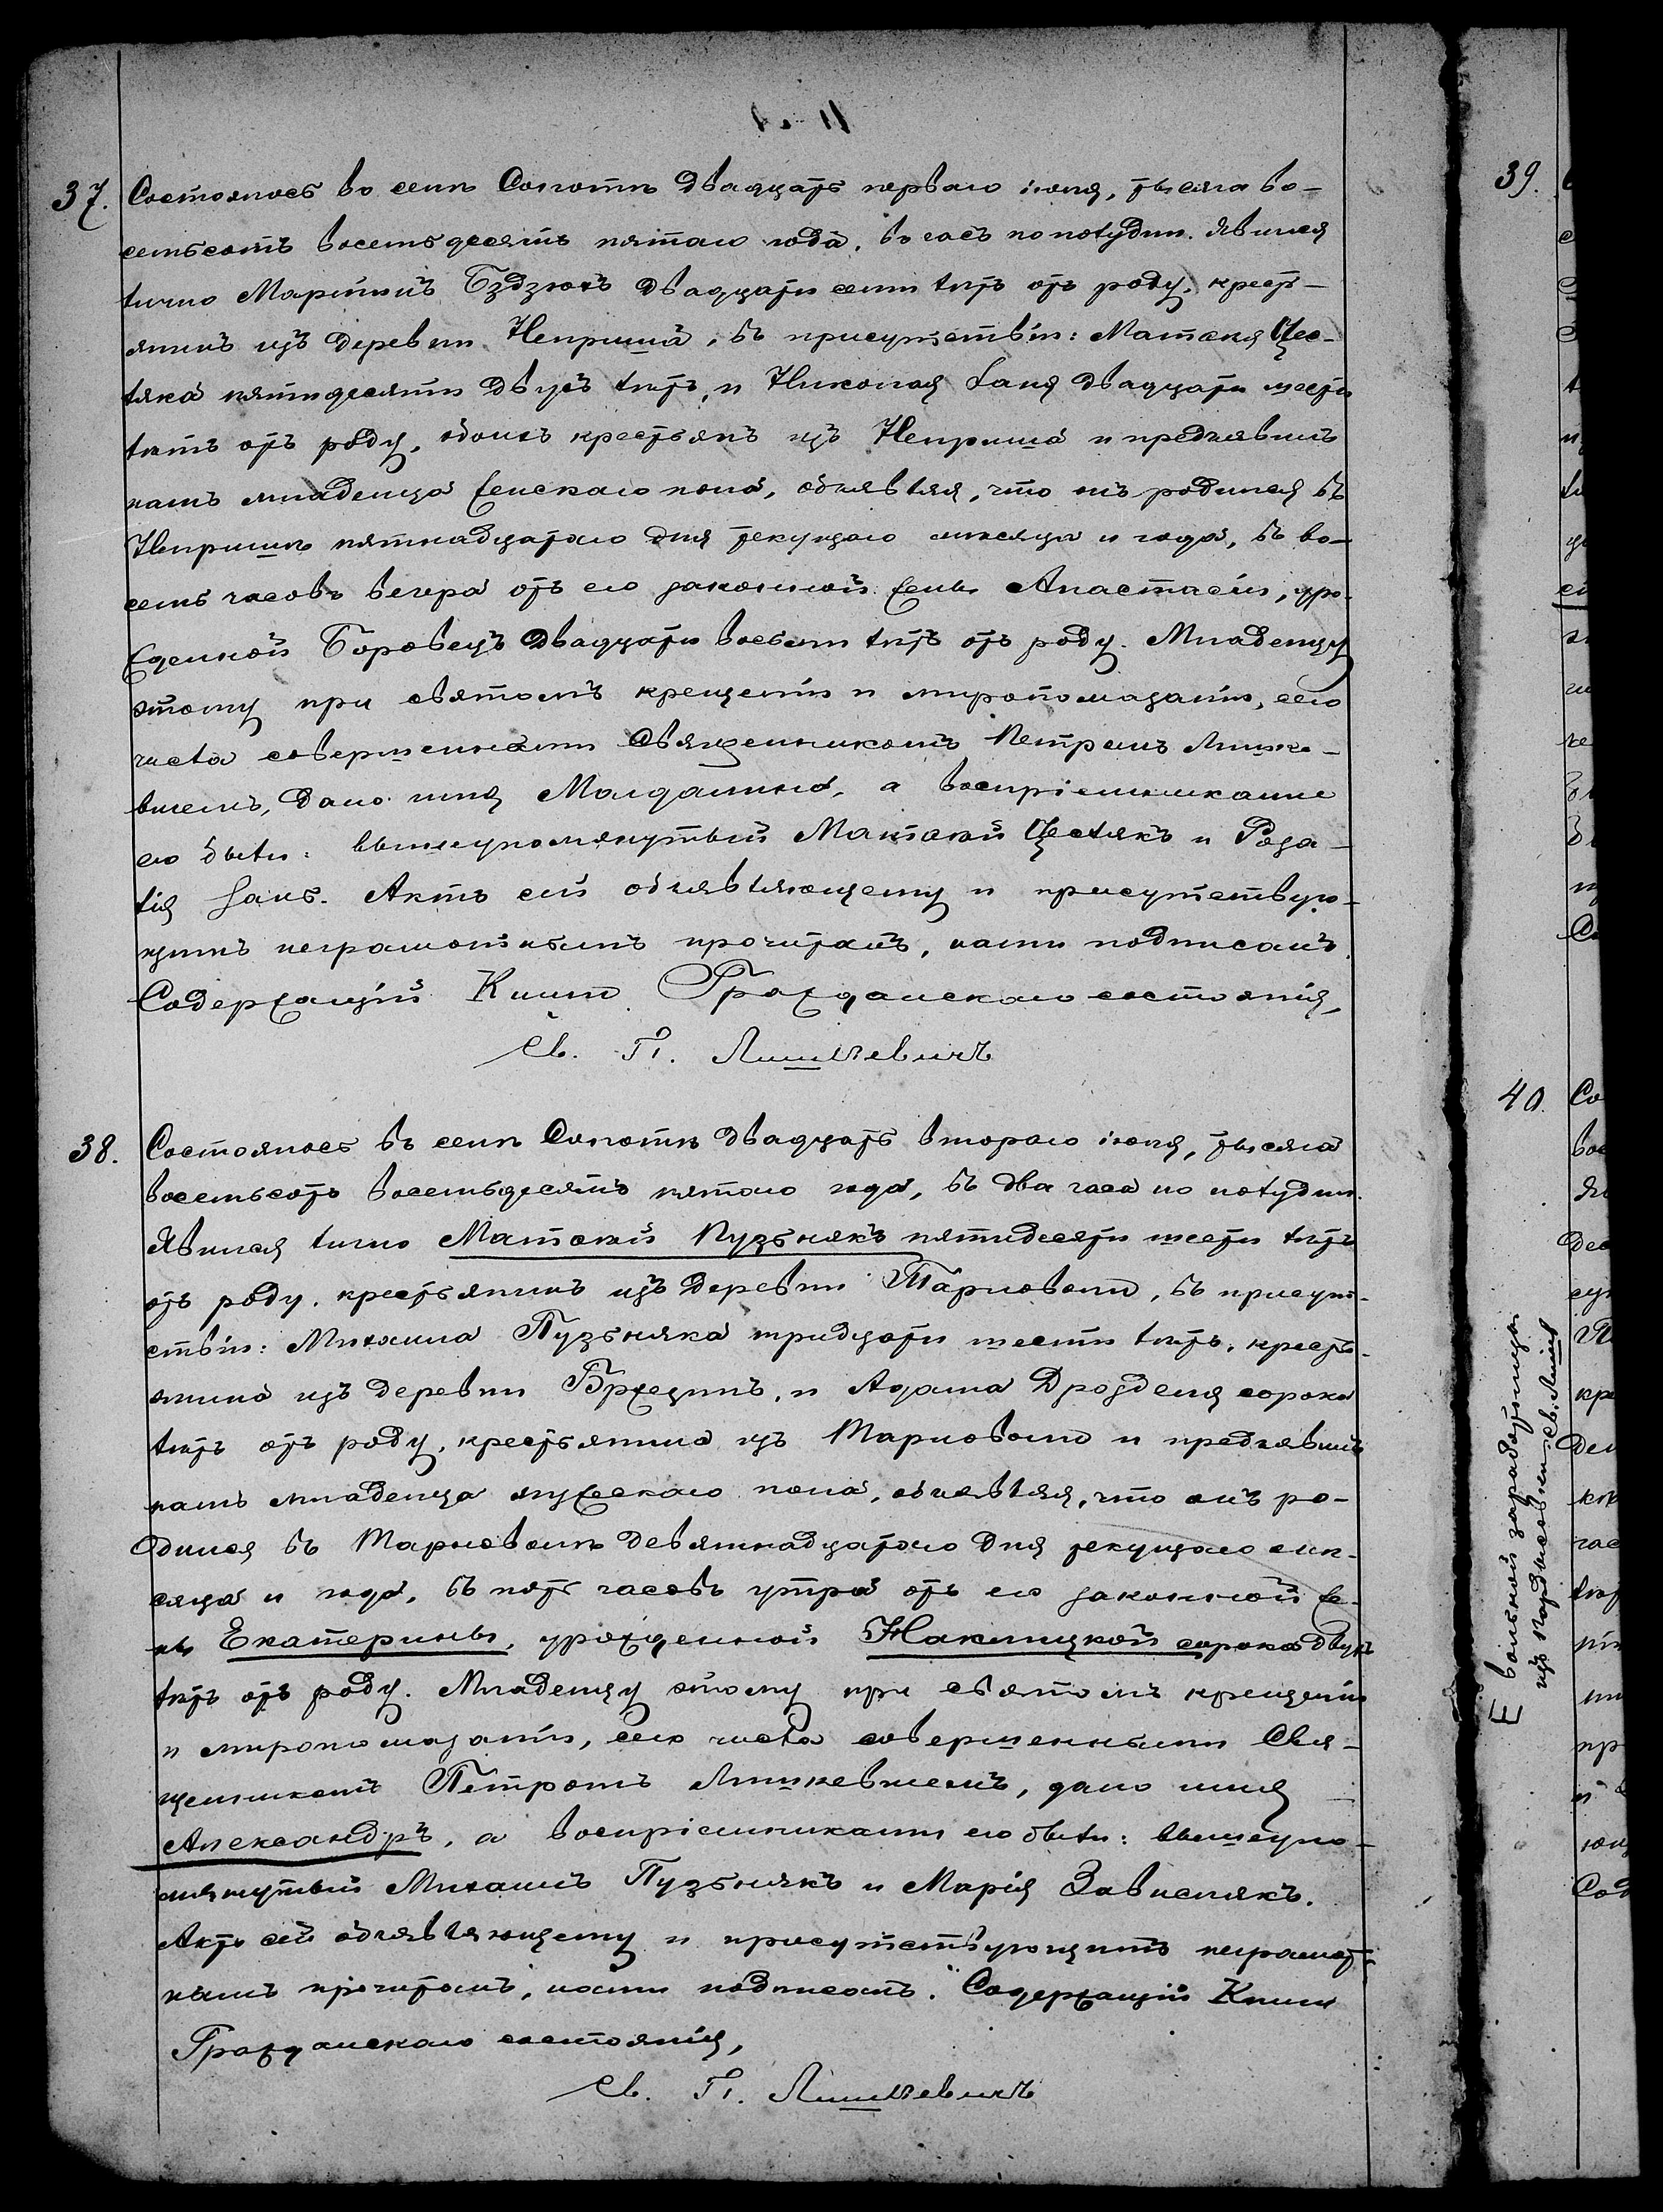 37. Состоялось во селѣ Сопотѣ двадцать перваго іюня, тысяча во-
семьсотъ восемьдесятъ пятаго года, въ часъ по полудни. Явился
лично Мартинъ Бздзюхъ двадцати семи лѣтъ отъ роду, кресть-
янинъ изъ деревни Неприша, въ присутствіи: Матѳея
пятидесяти двухъ лѣтъ, и Николая двадцати шести
лѣтъ отъ роду, обоихъ крестьянъ изъ Неприша и предъявилъ
намъ младенца женскаго пола, объявляя, что онъ родился въ
Непришѣ пятнадцатаго дня текущаго мѣсяца и года, въ во-
семь часовъ вечера отъ его законной жены Анастасіи, уро-
жденной Боровецъ двадцати восьми лѣтъ отъ роду. Младенцу
этому при святомъ крещеніи и миропомазаніи, сего
числа совершенномъ Священникомъ Петромъ Лишке-
вичемъ, дано имя Магдалина, а воспріемниками
его были: вышеупомянутый Матѳей и Роза-
лія Акть сей объявляющему и присутствую-
щимъ неграмотнымъ прочитанъ, нами подписанъ.
Содержащій Книги Гражданскаго состоянія,
Св. П. Лишкевичъ
38. Состоялось въ селѣ Сопотѣ двадцать втораго іюня, тысяча
восемьсотъ восемьдесятъ пятаго года, въ два часа по полудни.
Явился лично Матѳей Пузьнякъ пятидесяти шести лѣтъ
отъ роду, крестьянинъ изъ деревни Тарноволи, въ присут-
ствіи: Михаила Пузьняка тридцати шести лѣтъ, кресть-
янина изъ деревни Бржезинъ, и Адама Дрозделя сорока
лѣтъ отъ роду, крестьянина изъ Тарноволи и предъявилъ
намъ младенца мужескаго пола, объявляя, что онъ ро-
дился въ Тарноволѣ девятнадцатаго дня текущаго мѣ-
сяца и года, въ пять часовъ утра отъ его законной же-
ны Екатерины, урожденной Наклицкой сорока двухъ
лѣтъ отъ роду. Младенцу этому при святомъ крещеніи
и миропомазаніи, сего числа совершенными Свя-
щенникомъ Петромъ Лишкевичемъ, дано имя
Александръ, а воспріемниками его были: вышеупо-
мянутый Михаилъ Пузьнякъ и Марія Завислякъ.
Актъ сей объявляющему и присутствующимъ неграмот-
нымъ прочитанъ, нами подписанъ. Содержащій Книги
Гражданскаго состоянія,
Св. П. Лишкевичъ
39.
40.